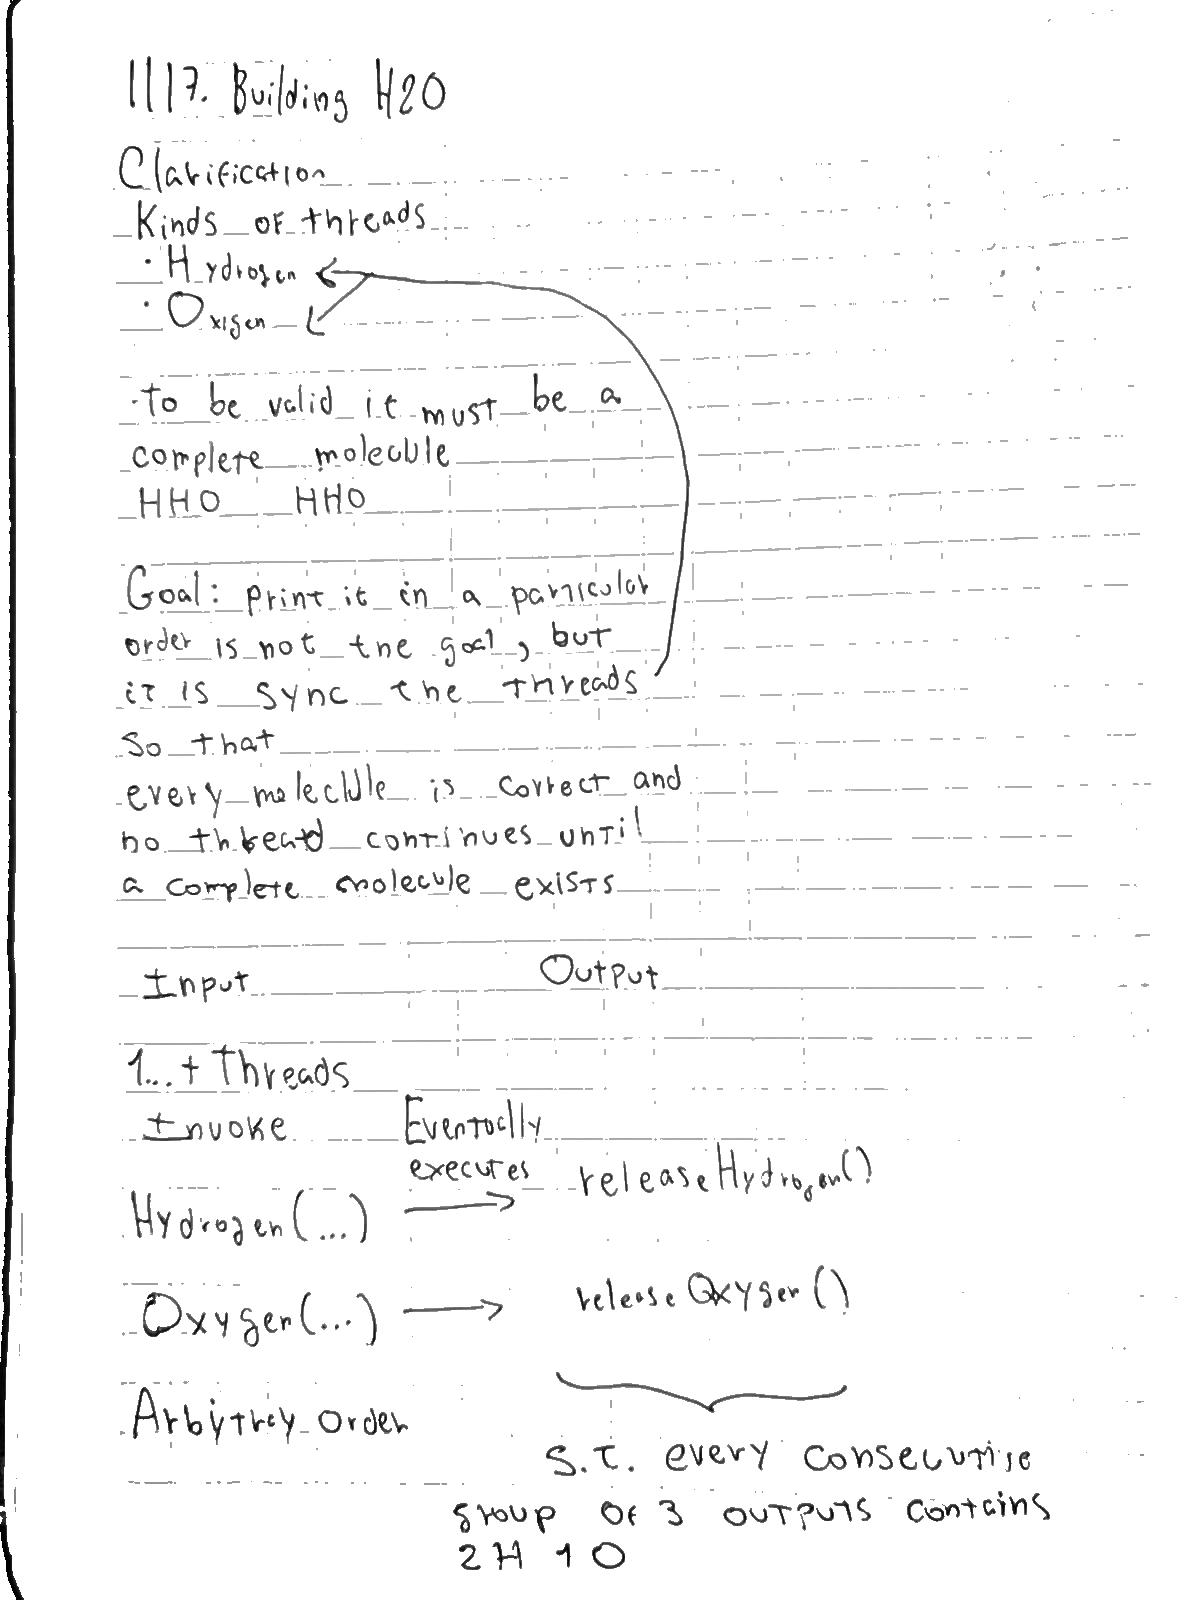 1117. Building H2O
Clarification
Kinds of threads
· Hydrogen
· Oxigen
· to be valid it must be a
complete molecule
HHO HHO
Goal: print it in a particular
order is not the goal, but
it is sync the threads
so that
every molecule is correct and
no thread continues until
a complete molecule exists
Input Output
1...+ Threads
Invoke Eventually
executes
Hydrogen(...) → releaseHydrogen()
Oxygen(...) → releaseOxygen()
Arbitrey order
S.T. every consecutive
group of 3 outputs contains
2H 1O